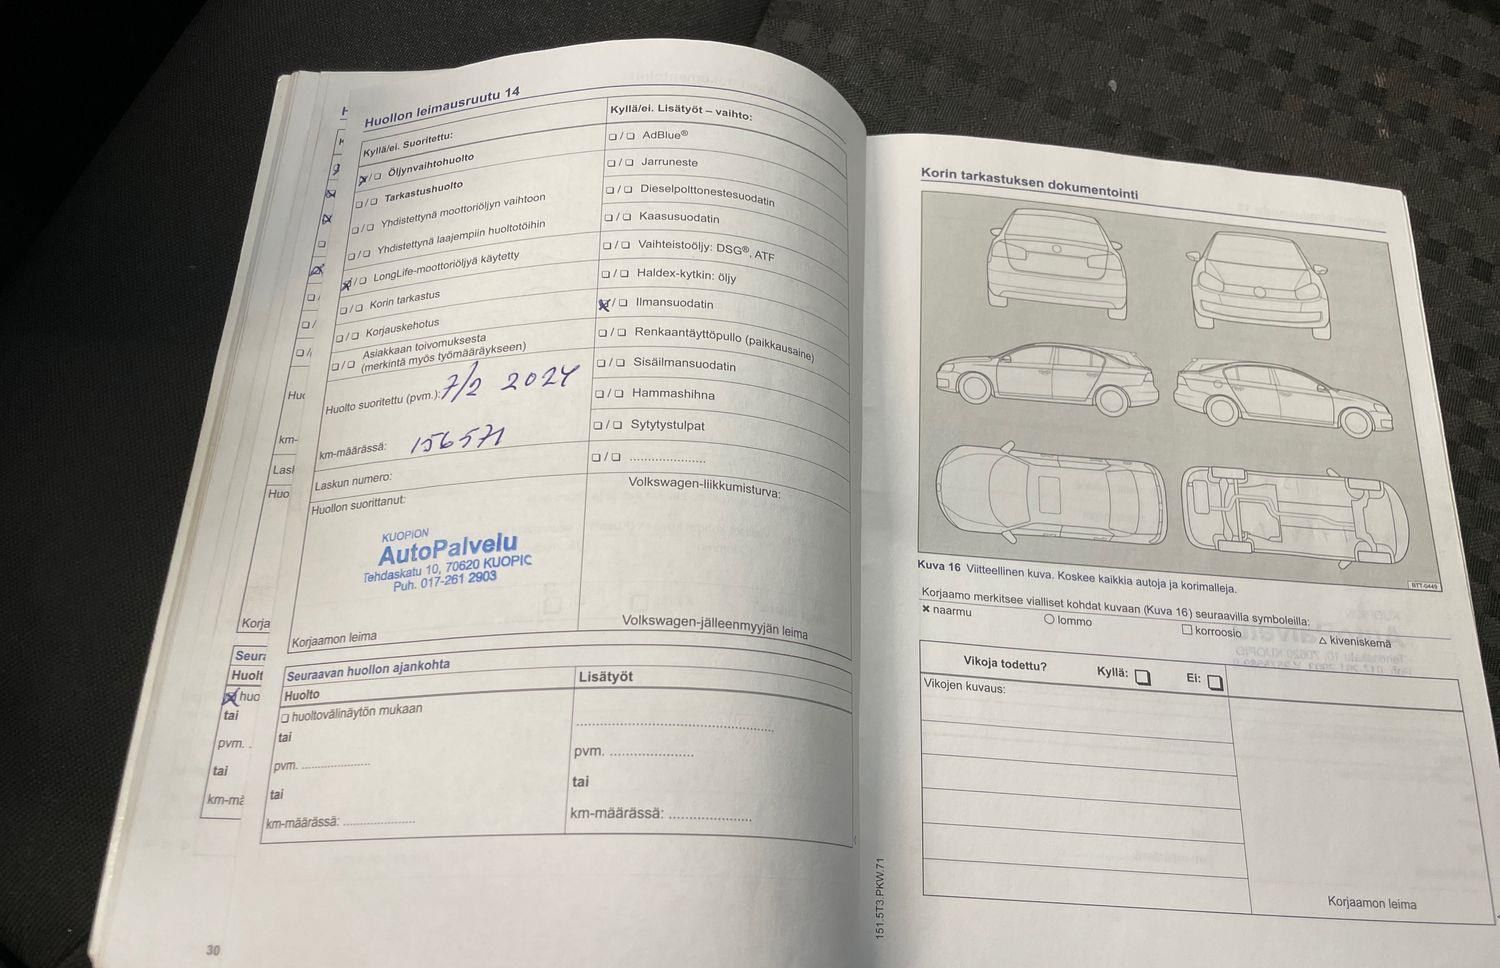 Huollon leimausruutu 14
Kyllä/ei. Suoritettu:
☒/❏ Öljynvaihtohuolto
❏/❏ Tarkastushuolto
❏/❏ Yhdistettynä moottoriöljyn vaihtoon
❏/❏ Yhdistettynä laajempiin huoltotöihin
☒/❏ LongLife-moottoriöljyä käytetty
❏/❏ Korin tarkastus
❏/❏ Korjauskehotus
❏/❏ Asiakkaan toivomuksesta
(merkintä myös työmääräykseen)
Huolto suoritettu (pvm.): 7/2 2024
km-määrässä: 156571
Laskun numero:
Huollon suorittanut:
KUOPION
AutoPalvelu
Tehdaskatu 10, 70620 KUOPIO
Puh. 017-261 2903
Korjaamon leima
Kyllä/ei. Lisätyöt – vaihto:
❏/❏ AdBlue®
❏/❏ Jarruneste
❏/❏ Dieselpolttonestesuodatin
❏/❏ Kaasusuodatin
❏/❏ Vaihteistoöljy: DSG®, ATF
❏/❏ Haldex-kytkin: öljy
☒/❏ Ilmansuodatin
❏/❏ Renkaantäyttöpullo (paikkausaine)
❏/❏ Sisäilmansuodatin
❏/❏ Hammashihna
❏/❏ Sytytystulpat
❏/❏ ......................
Volkswagen-liikkumisturva:
Volkswagen-jälleenmyyjän leima
Seuraavan huollon ajankohta
Huolto
❏ huoltovälinäytön mukaan
tai
pvm. ....................
tai
km-määrässä: ....................
Lisätyöt
pvm. ......................
tai
km-määrässä: ......................
30
Huo
km-
Lasl
Huo
Korja
Seura
Huolt
☒ huo
tai
pvm. .
tai
km-mä
151.5T3.PKW.71
Korin tarkastuksen dokumentointi
BTT-0449
Kuva 16 Viitteellinen kuva. Koskee kaikkia autoja ja korimalleja.
Korjaamo merkitsee vialliset kohdat kuvaan (Kuva 16) seuraavilla symboleilla:
✖ naarmu ○ lommo □ korroosio △ kiveniskemä
Vikoja todettu? Kyllä: ❏ Ei: ❏
Vikojen kuvaus:
Korjaamon leima